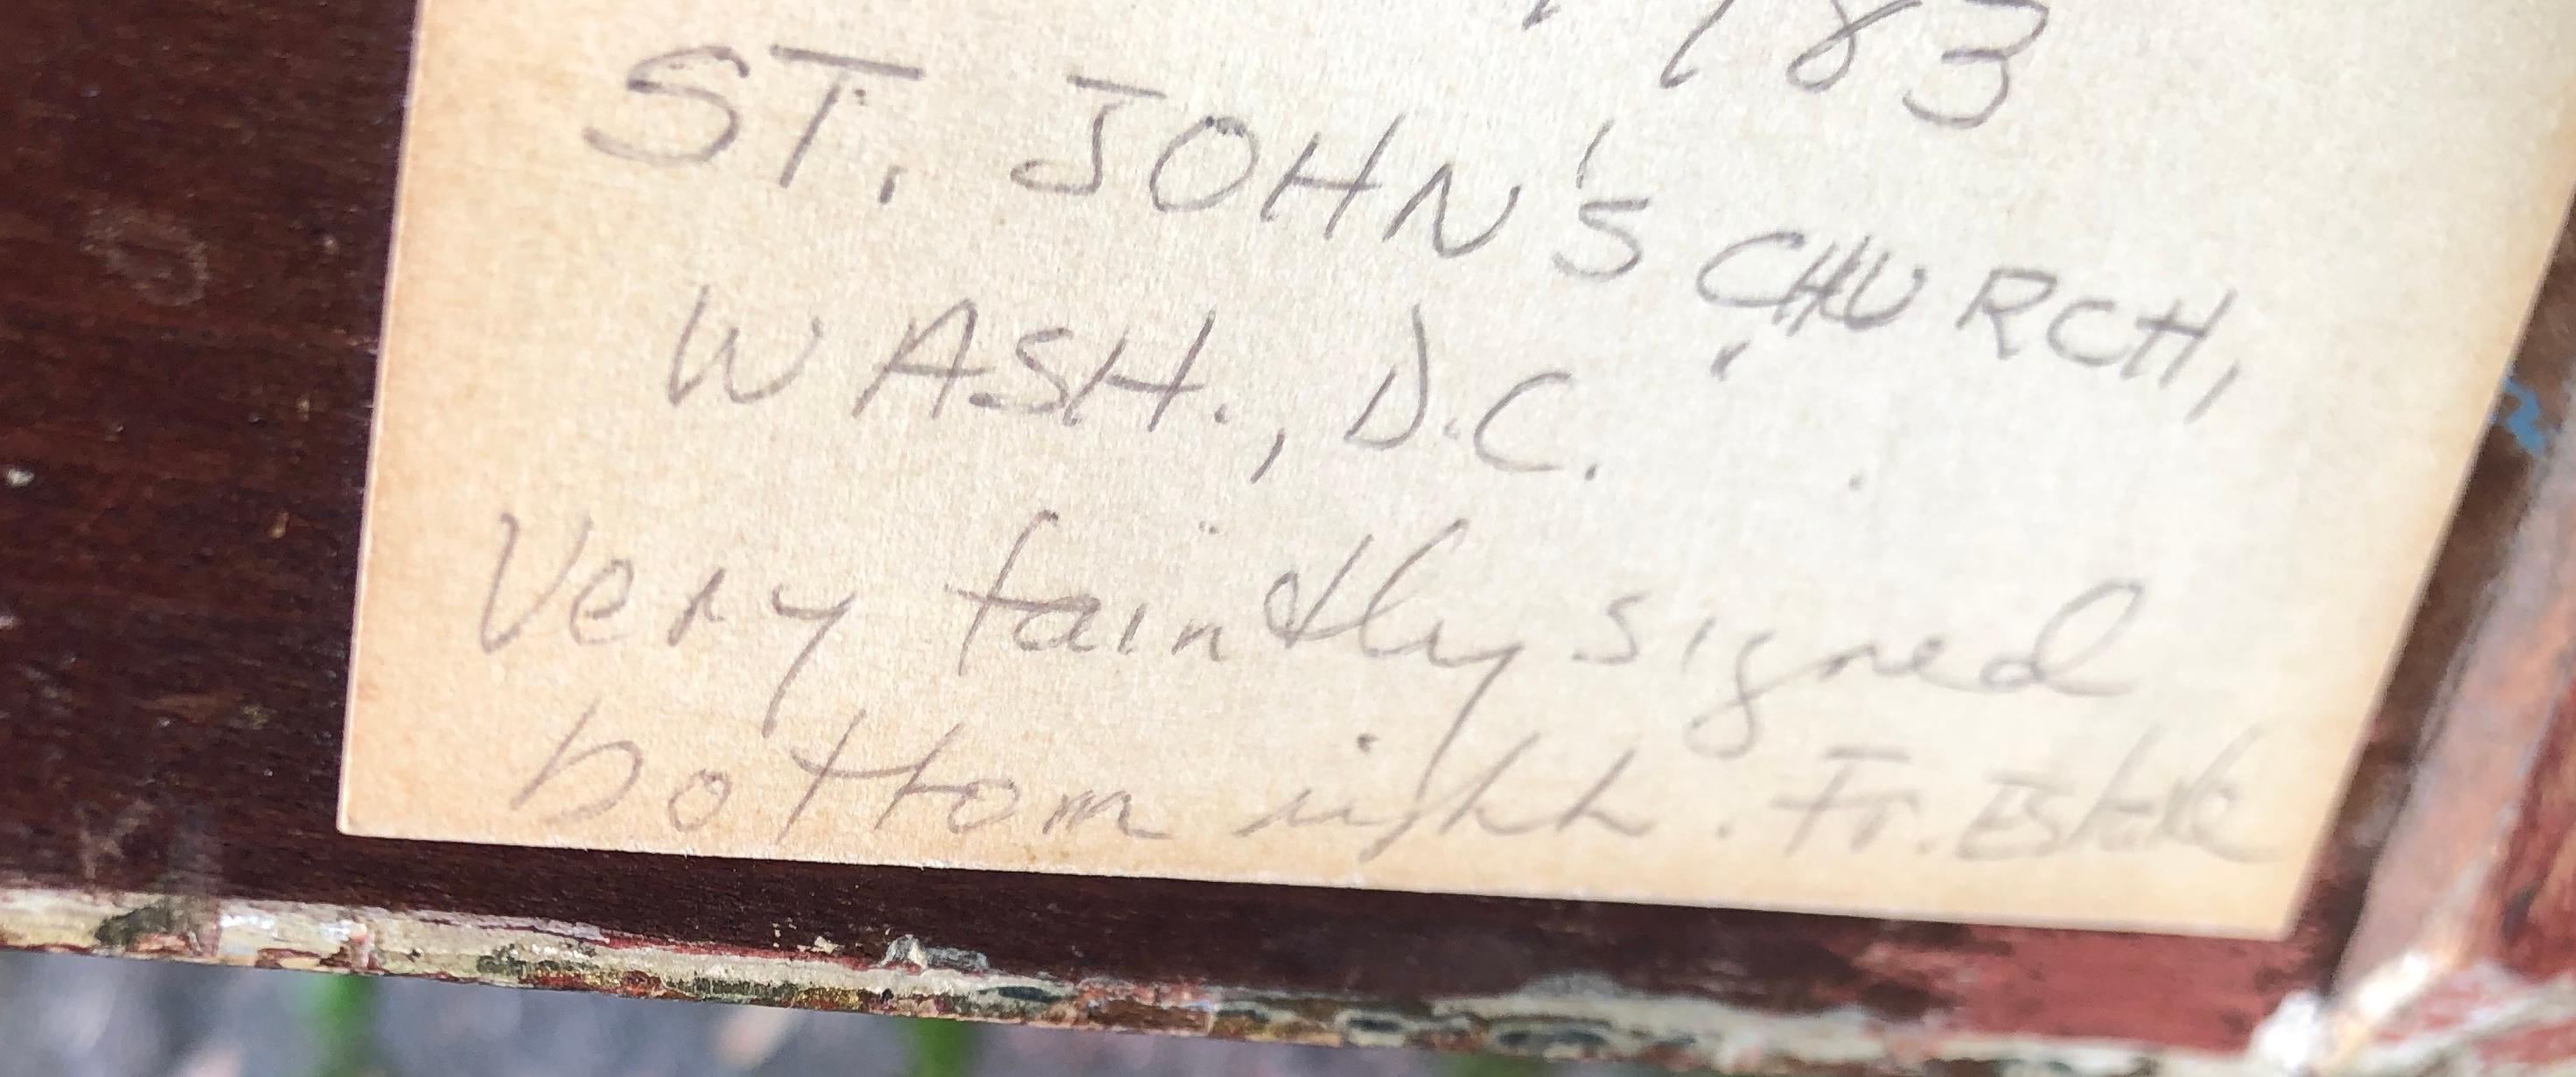 1983
ST. JOHN'S CHURCH,
WASH., D.C.
Very faintly signed
bottom right. Fr. Estate